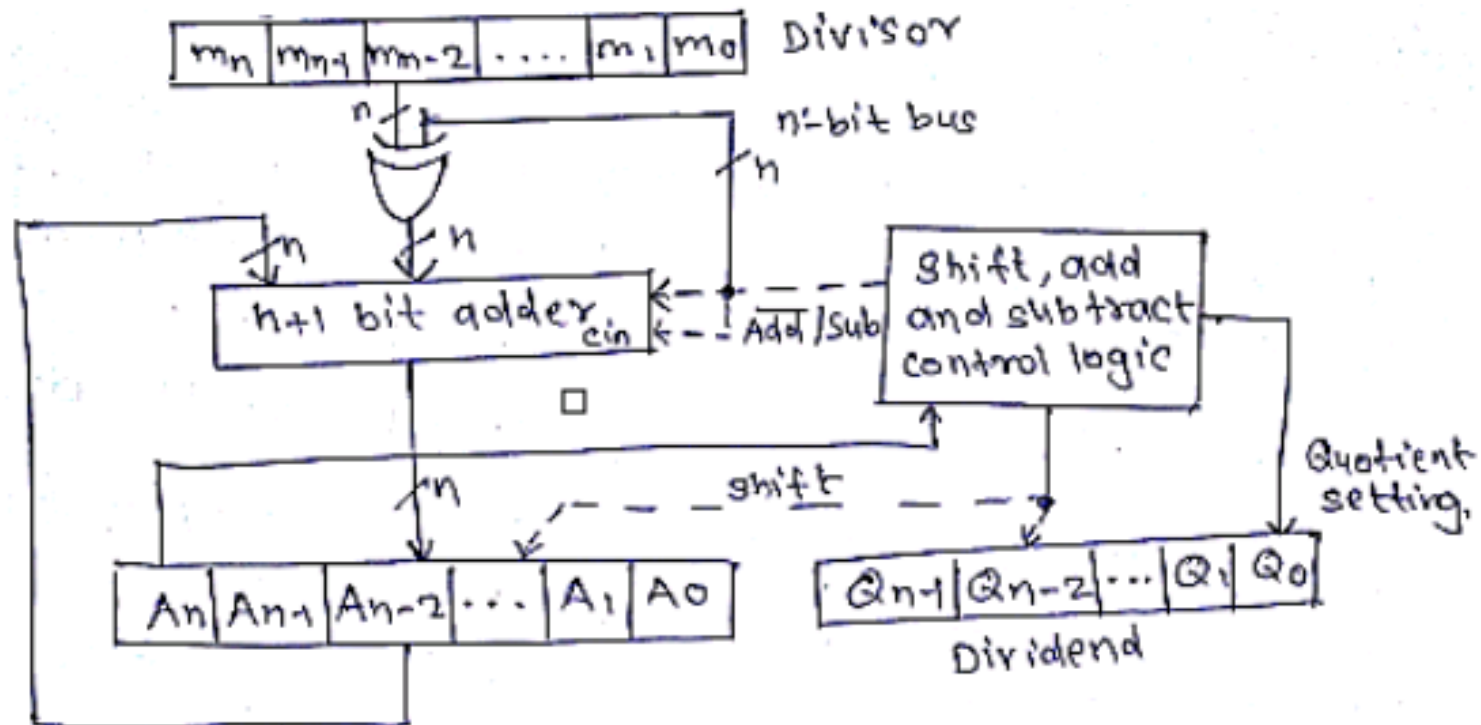 mn mn-1 mn-2 .... m1 m0 Divisor
n n'-bit bus
n
n n
n+1 bit adder cin
A̅d̅d̅/Sub
shift, add
and subtract
control logic
n
shift
Quotient
setting.
An An-1 An-2 ... A1 A0
Qn-1 Qn-2 ... Q1 Q0
Dividend